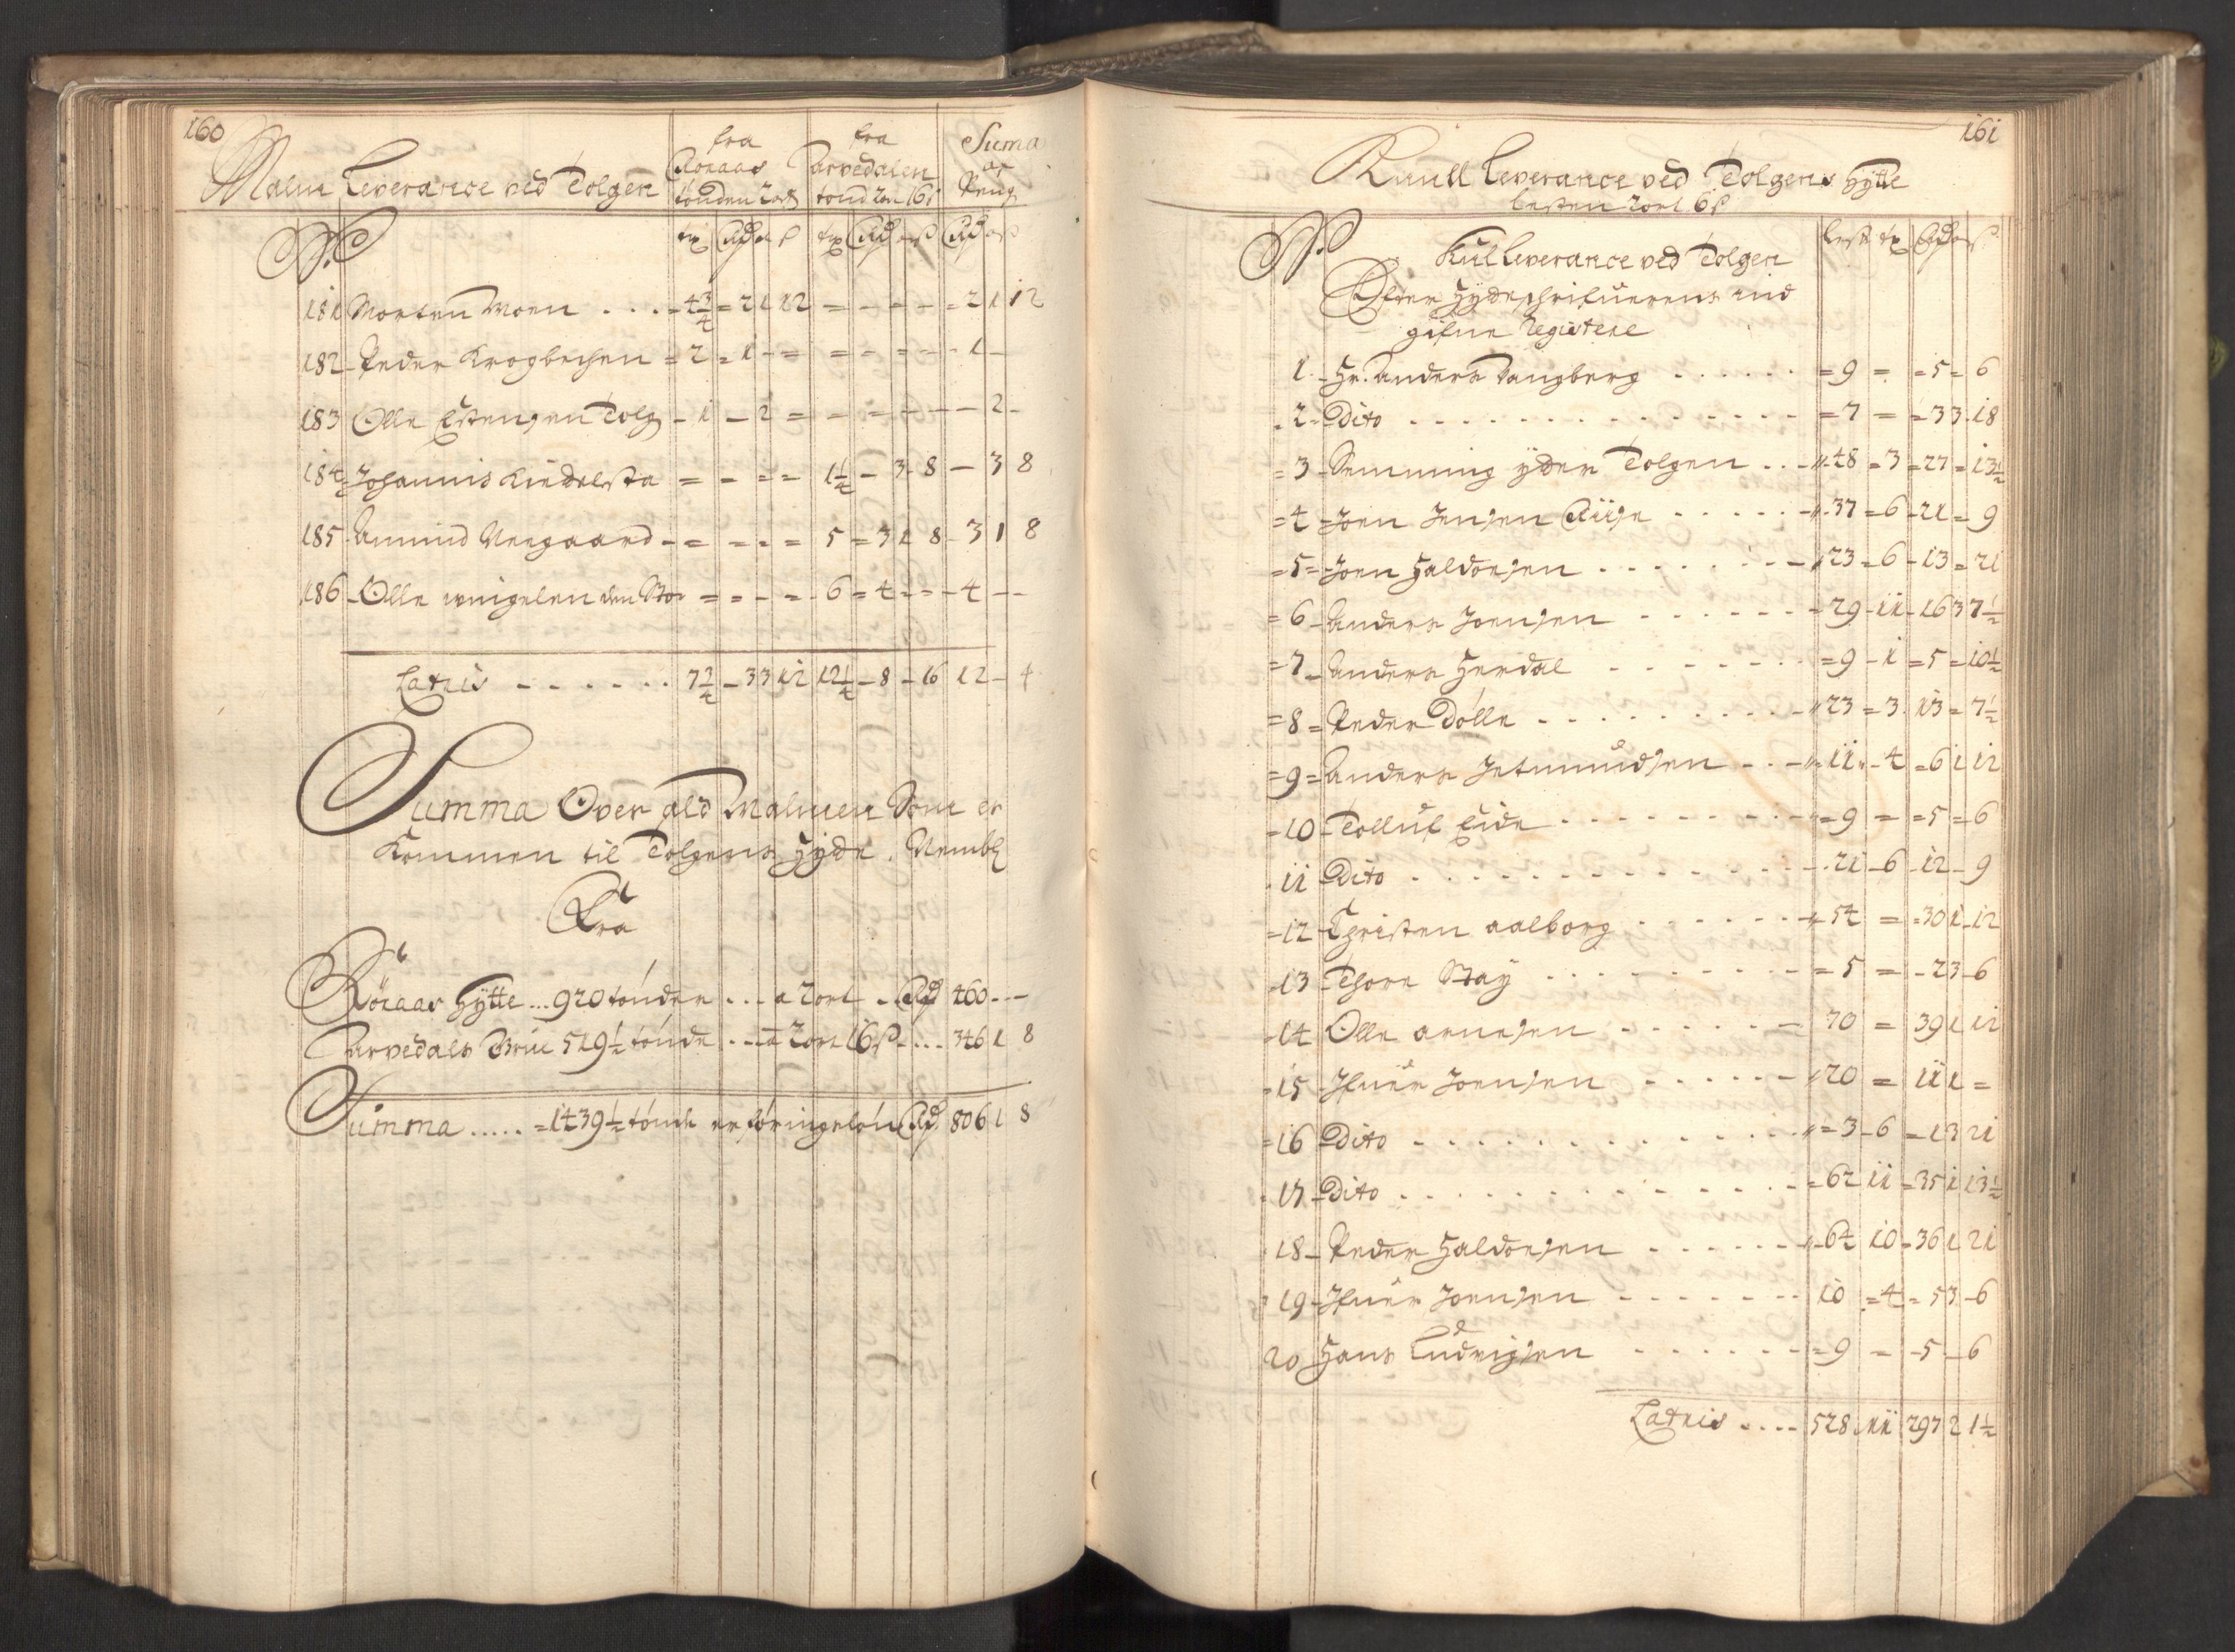 160
Malm Leverance ved Tolgen
fra Röraas tönden 2 ort
fra arvedalen tönd 2 ort 16 s
Suma af Peng
No
tr Rdr ort s tr Rdr ort s Rdr ort s
181 Morten Moen . . . 4 3/4 = 2 1 12 = - = - = 2 1 12
182 Peder Krogbechen = 2 = 1 - = = - = - - 1 -
183 Olle Estensen Tolg - 1 - 2 = - - = - - - 2 -
184 Johannis Kindelsta = - = = 1 1/4 - 3 - 8 - 3 8
185 Amund Nergaard - = - = = 5 = 3 1 8 - 3 1 8
186 Olle vingelen den Stor = = - = - 6 = 4 = = - 4 - -
Latris - - - - - - 7 3/4 - 3 3 12 12 1/4 - 8 - 16 12 - 4
Summa Over ald Malmen Som er
Kommen til Tolgens Hyde. Nembl
Fra
Röraas Hytte ... 920 tönder ... a 2 ort .. Rdr 460 - - -
arvedals Grue 519 1/2 tönde ... a 2 ort 16 s .... 346 1 8
Summa ..... = 1439 1/2 tönde er föringslön Rdr 806 1 8
161
Kuull Leverance ved Tolgens Hytte
Lesten 2 ort 6 s
No
Kul Leverance ved Tolgen
Lest tr Rdr ort s
Efter Hydeschrifuerens ind
gifne Registere
1. Hr. Anders Dangberg . . . . . . = 9 = = 5 = 6
2 Dito . . . . . . . = 7 = = 3 3 - 18
3 Semming öfver Tolgen . . . 48 = 3 = 27 = 13 1/2
4 Joen Jensen Riise . . . . . . 37 = 6 - 21 = 9
5 Joen Haldorsen . . . . . . . 23 = 6 - 13 = 21
6 Anders Joensen . . . . . . 29 - 11 - 16 3 7 1/2
7 Anders Herdal . . . . . . . = 9 - 1 = 5 = 10 1/2
8 Peder Dölle . . . . . . . . . 23 = 3 - 13 = 7 1/2
9 Anders Jetmundsen . . . 11 - 4 = 6 1 12
10 Tolluf Eide . . . . . . . . = 9 = = 5 = 6
11 Dito . . . . . . . 21 - 6 - 12 - 9
12 Christen aalborg . . . . . . 54 = = 30 1 - 12
13 Thore Stay . . . . . . . . = 5 = - 2 3 - 6
14 Olle arnesen . . . . . . 70 = 39 1 12
15 Ifuer Joensen . . . . . . 20 = 11 1 =
16 Dito . . . . . . . = 3 - 6 = 1 3 21
17 Dito . . . . . . . = 62 11 = 35 1 13 1/2
18 Peder Haldorsen . . . . . . 64 10 = 36 1 21
19 Ifuer Joensen . . . . . . . 10 = 4 = 5 3 - 6
20 Hans Ludvigsen . . . . . . = 9 = - 5 - 6
Latris .... 528 11 297 2 1 1/2